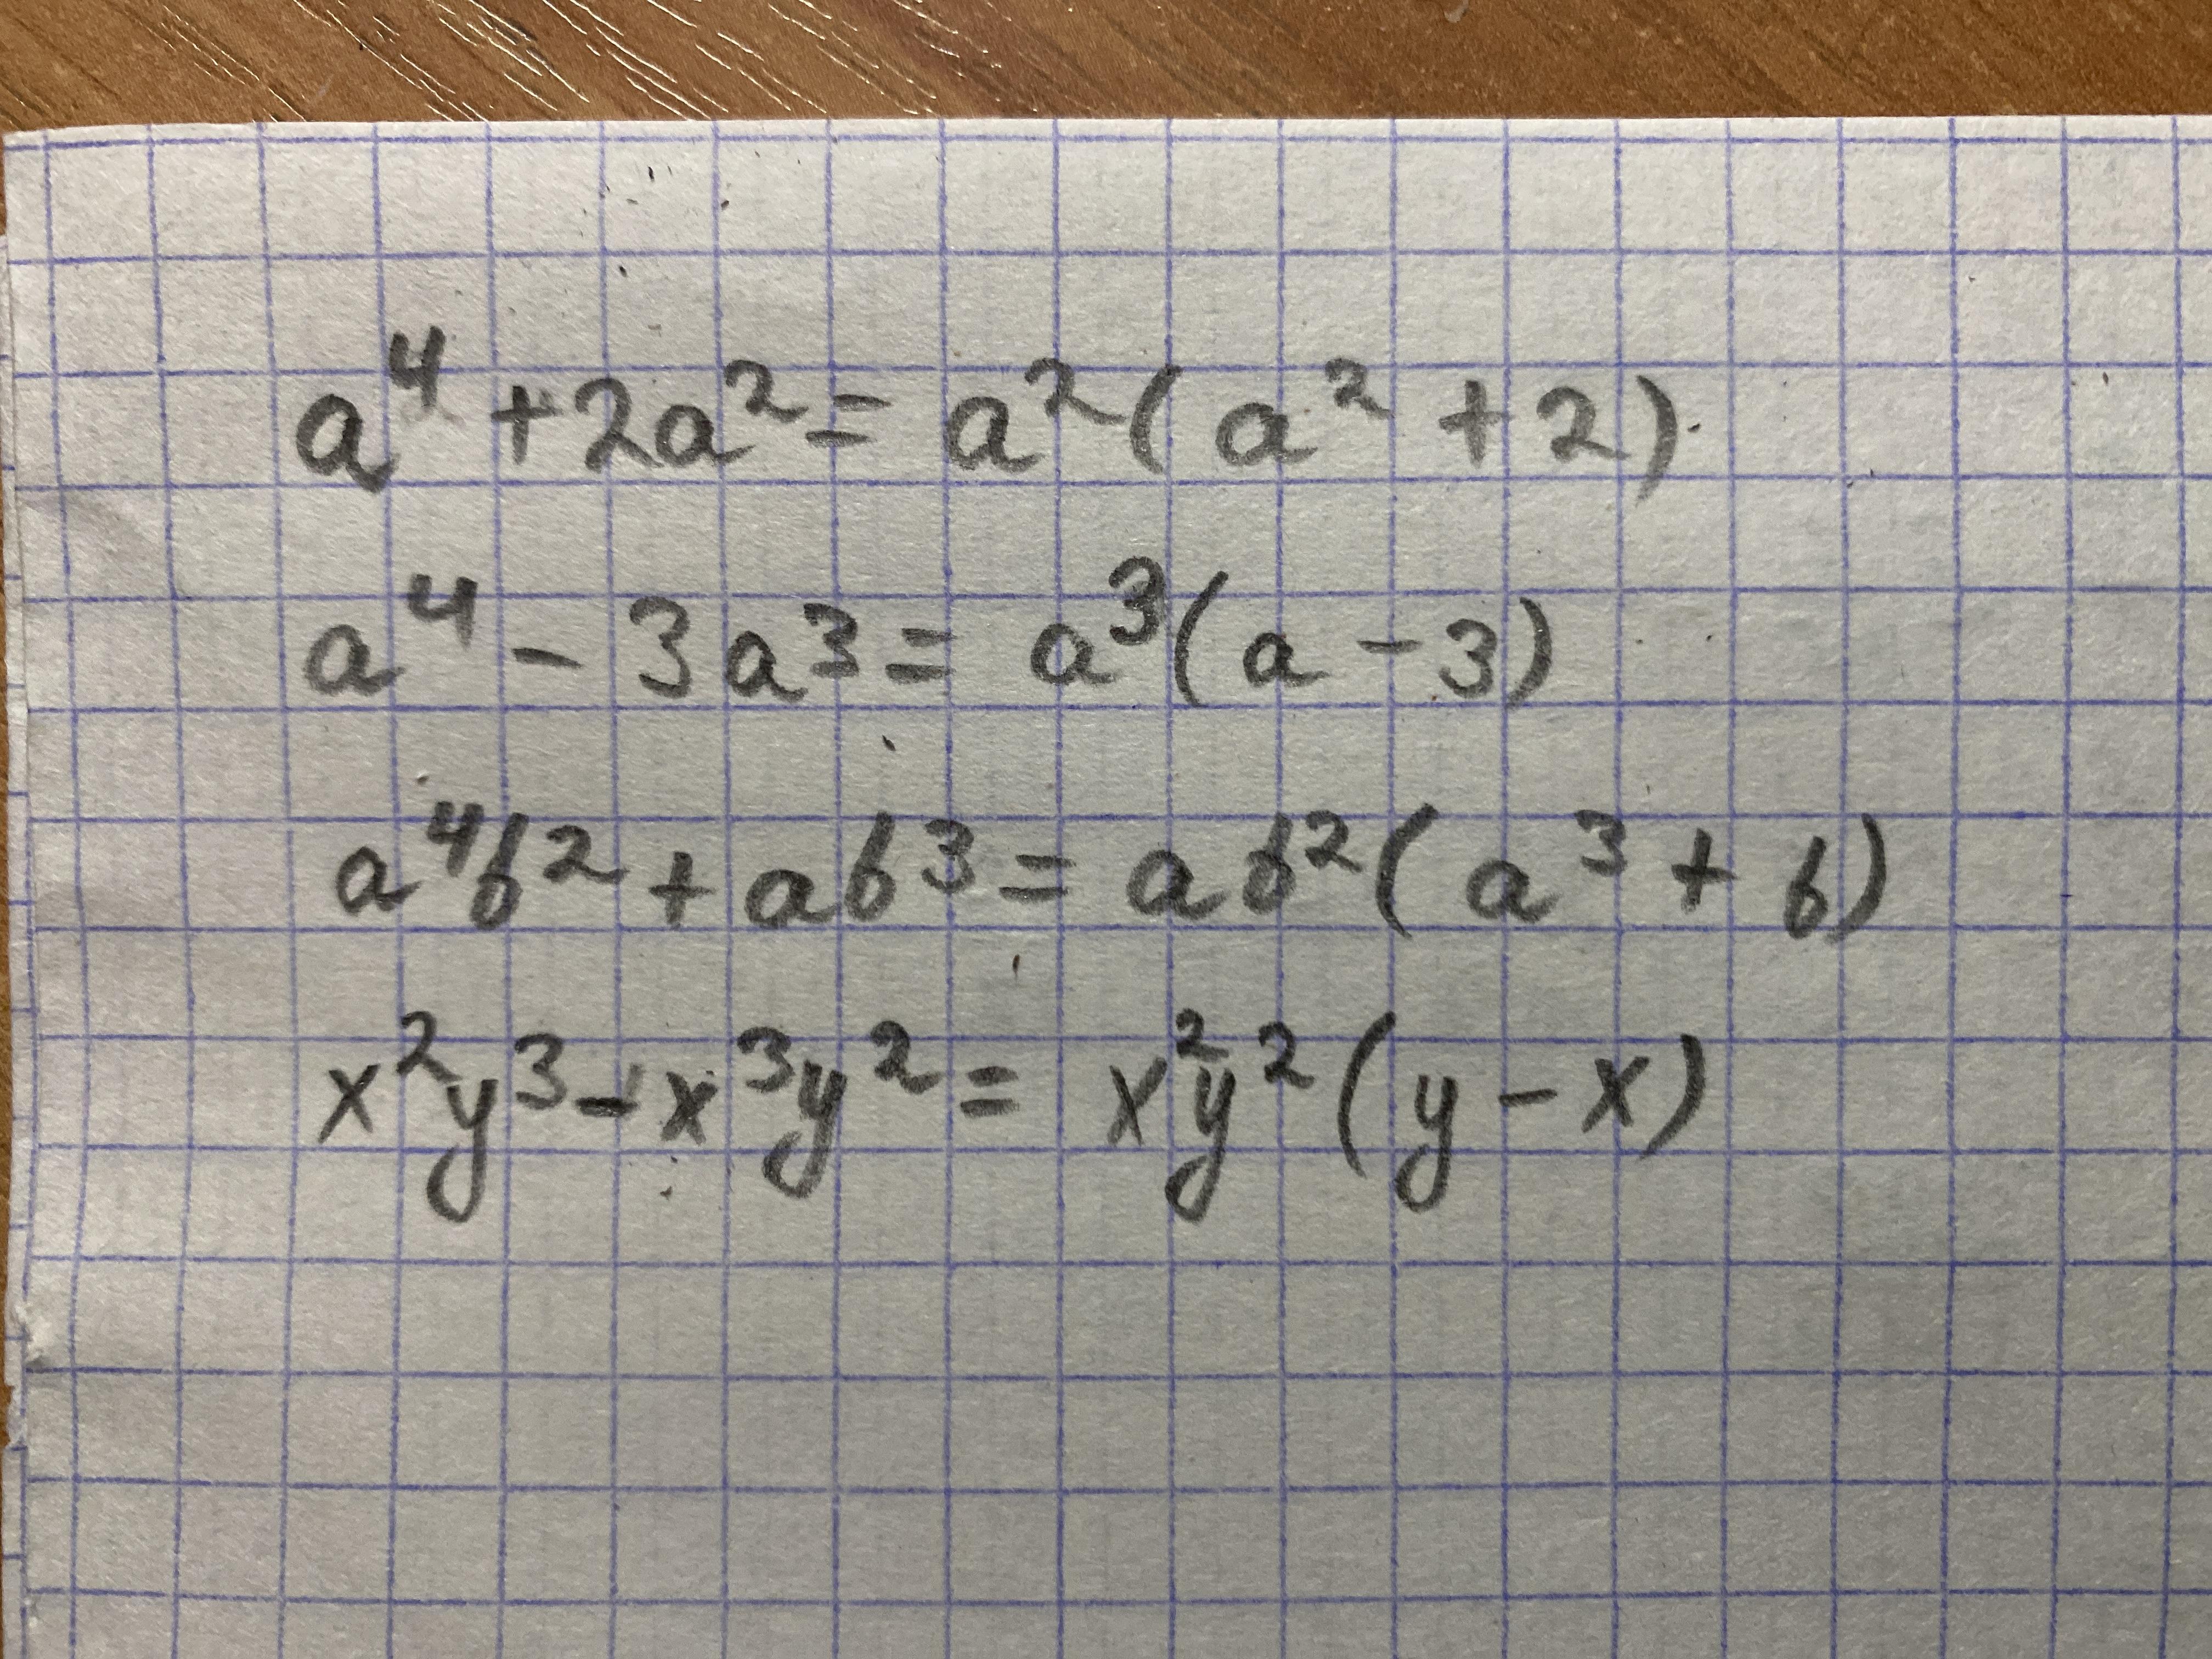 a⁴ + 2a² = a² ( a² + 2)
a⁴ - 3a³ = a³ (a - 3)
a⁴b² + ab³ = ab² ( a³ + b)
x²y³ - x³y² = x²y² (y - x)